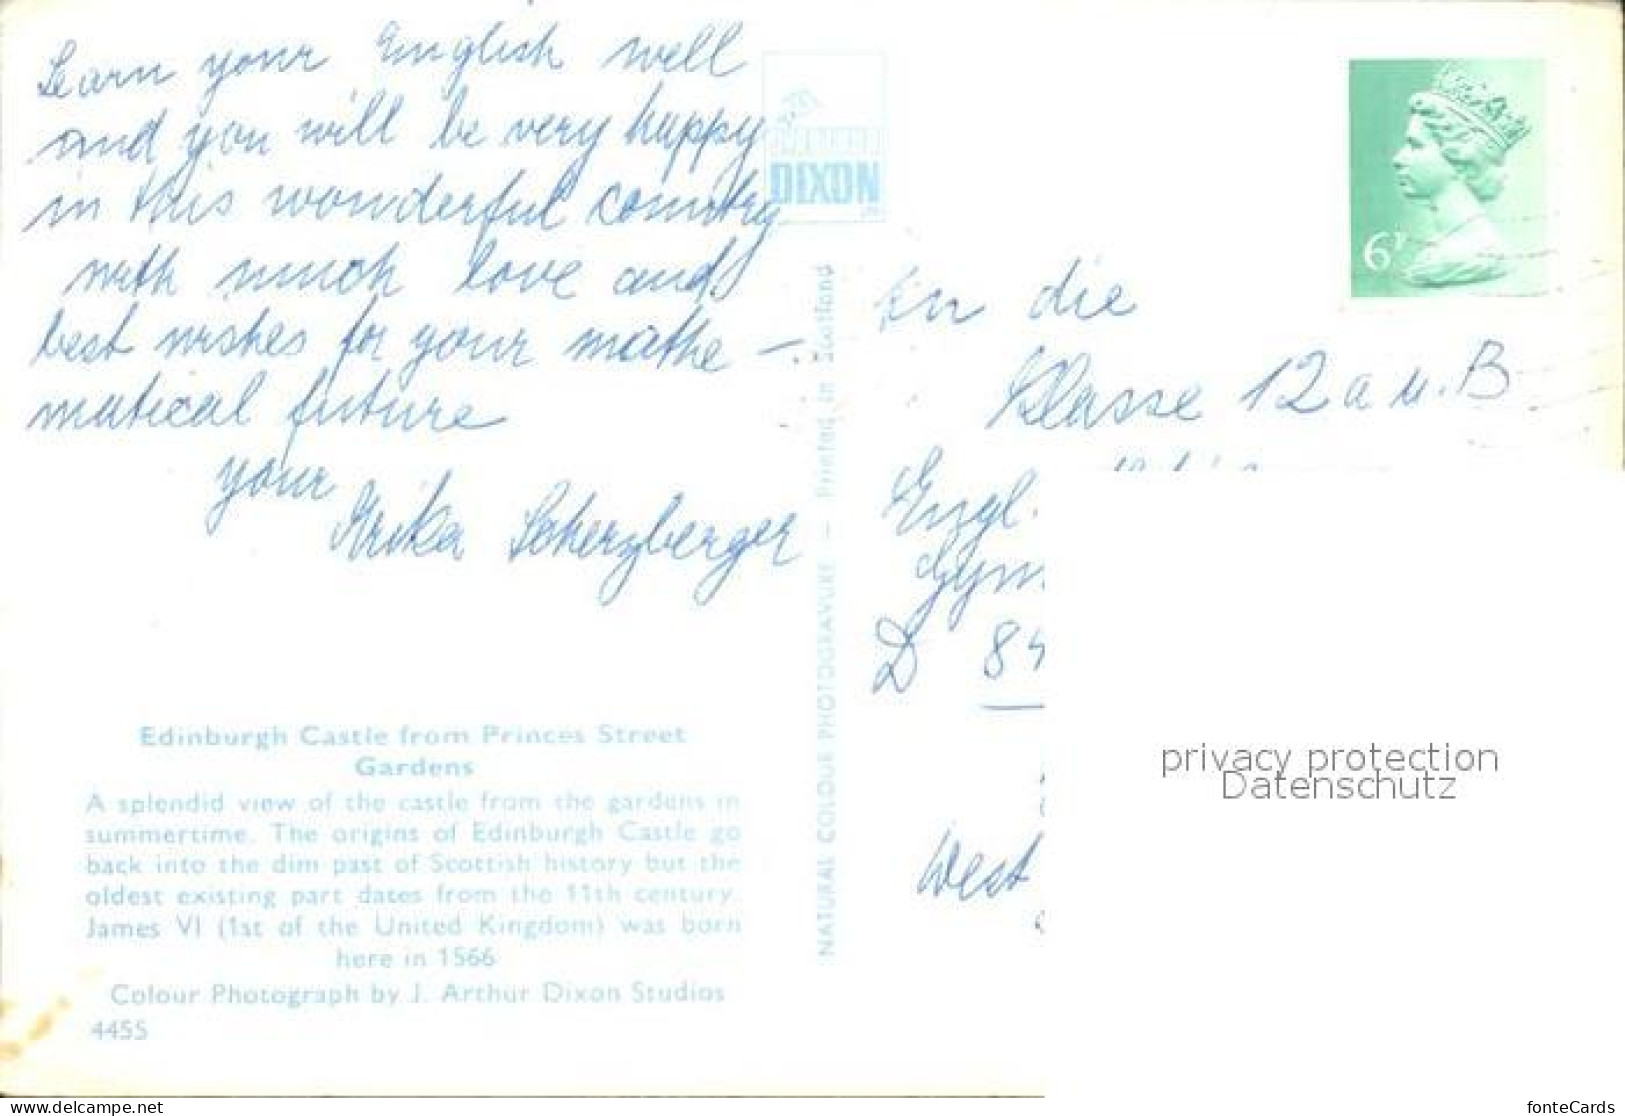 Learn your English well
and you will be very happy
in this wonderful country
with much love and
best wishes for your mathe -
matical future
your
Erika Scherzberger
Edinburgh Castle from Princes Street
Gardens
A splendid view of the castle from the gardens in
summertime. The origins of Edinburgh Castle go
back into the dim past of Scottish history but the
oldest existing part dates from the 11th century.
James VI (1st of the United Kingdom) was born
here in 1566
Colour Photograph by J. Arthur Dixon Studios
4455
DIXON
NATURAL COLOUR PHOTOGRAVURE – Printed in Scotland
6P
An die
Klasse 12 a u. B
Engl.
Gym
D 84
West
privacy protection
Datenschutz
www.delcampe.net
fonteCards